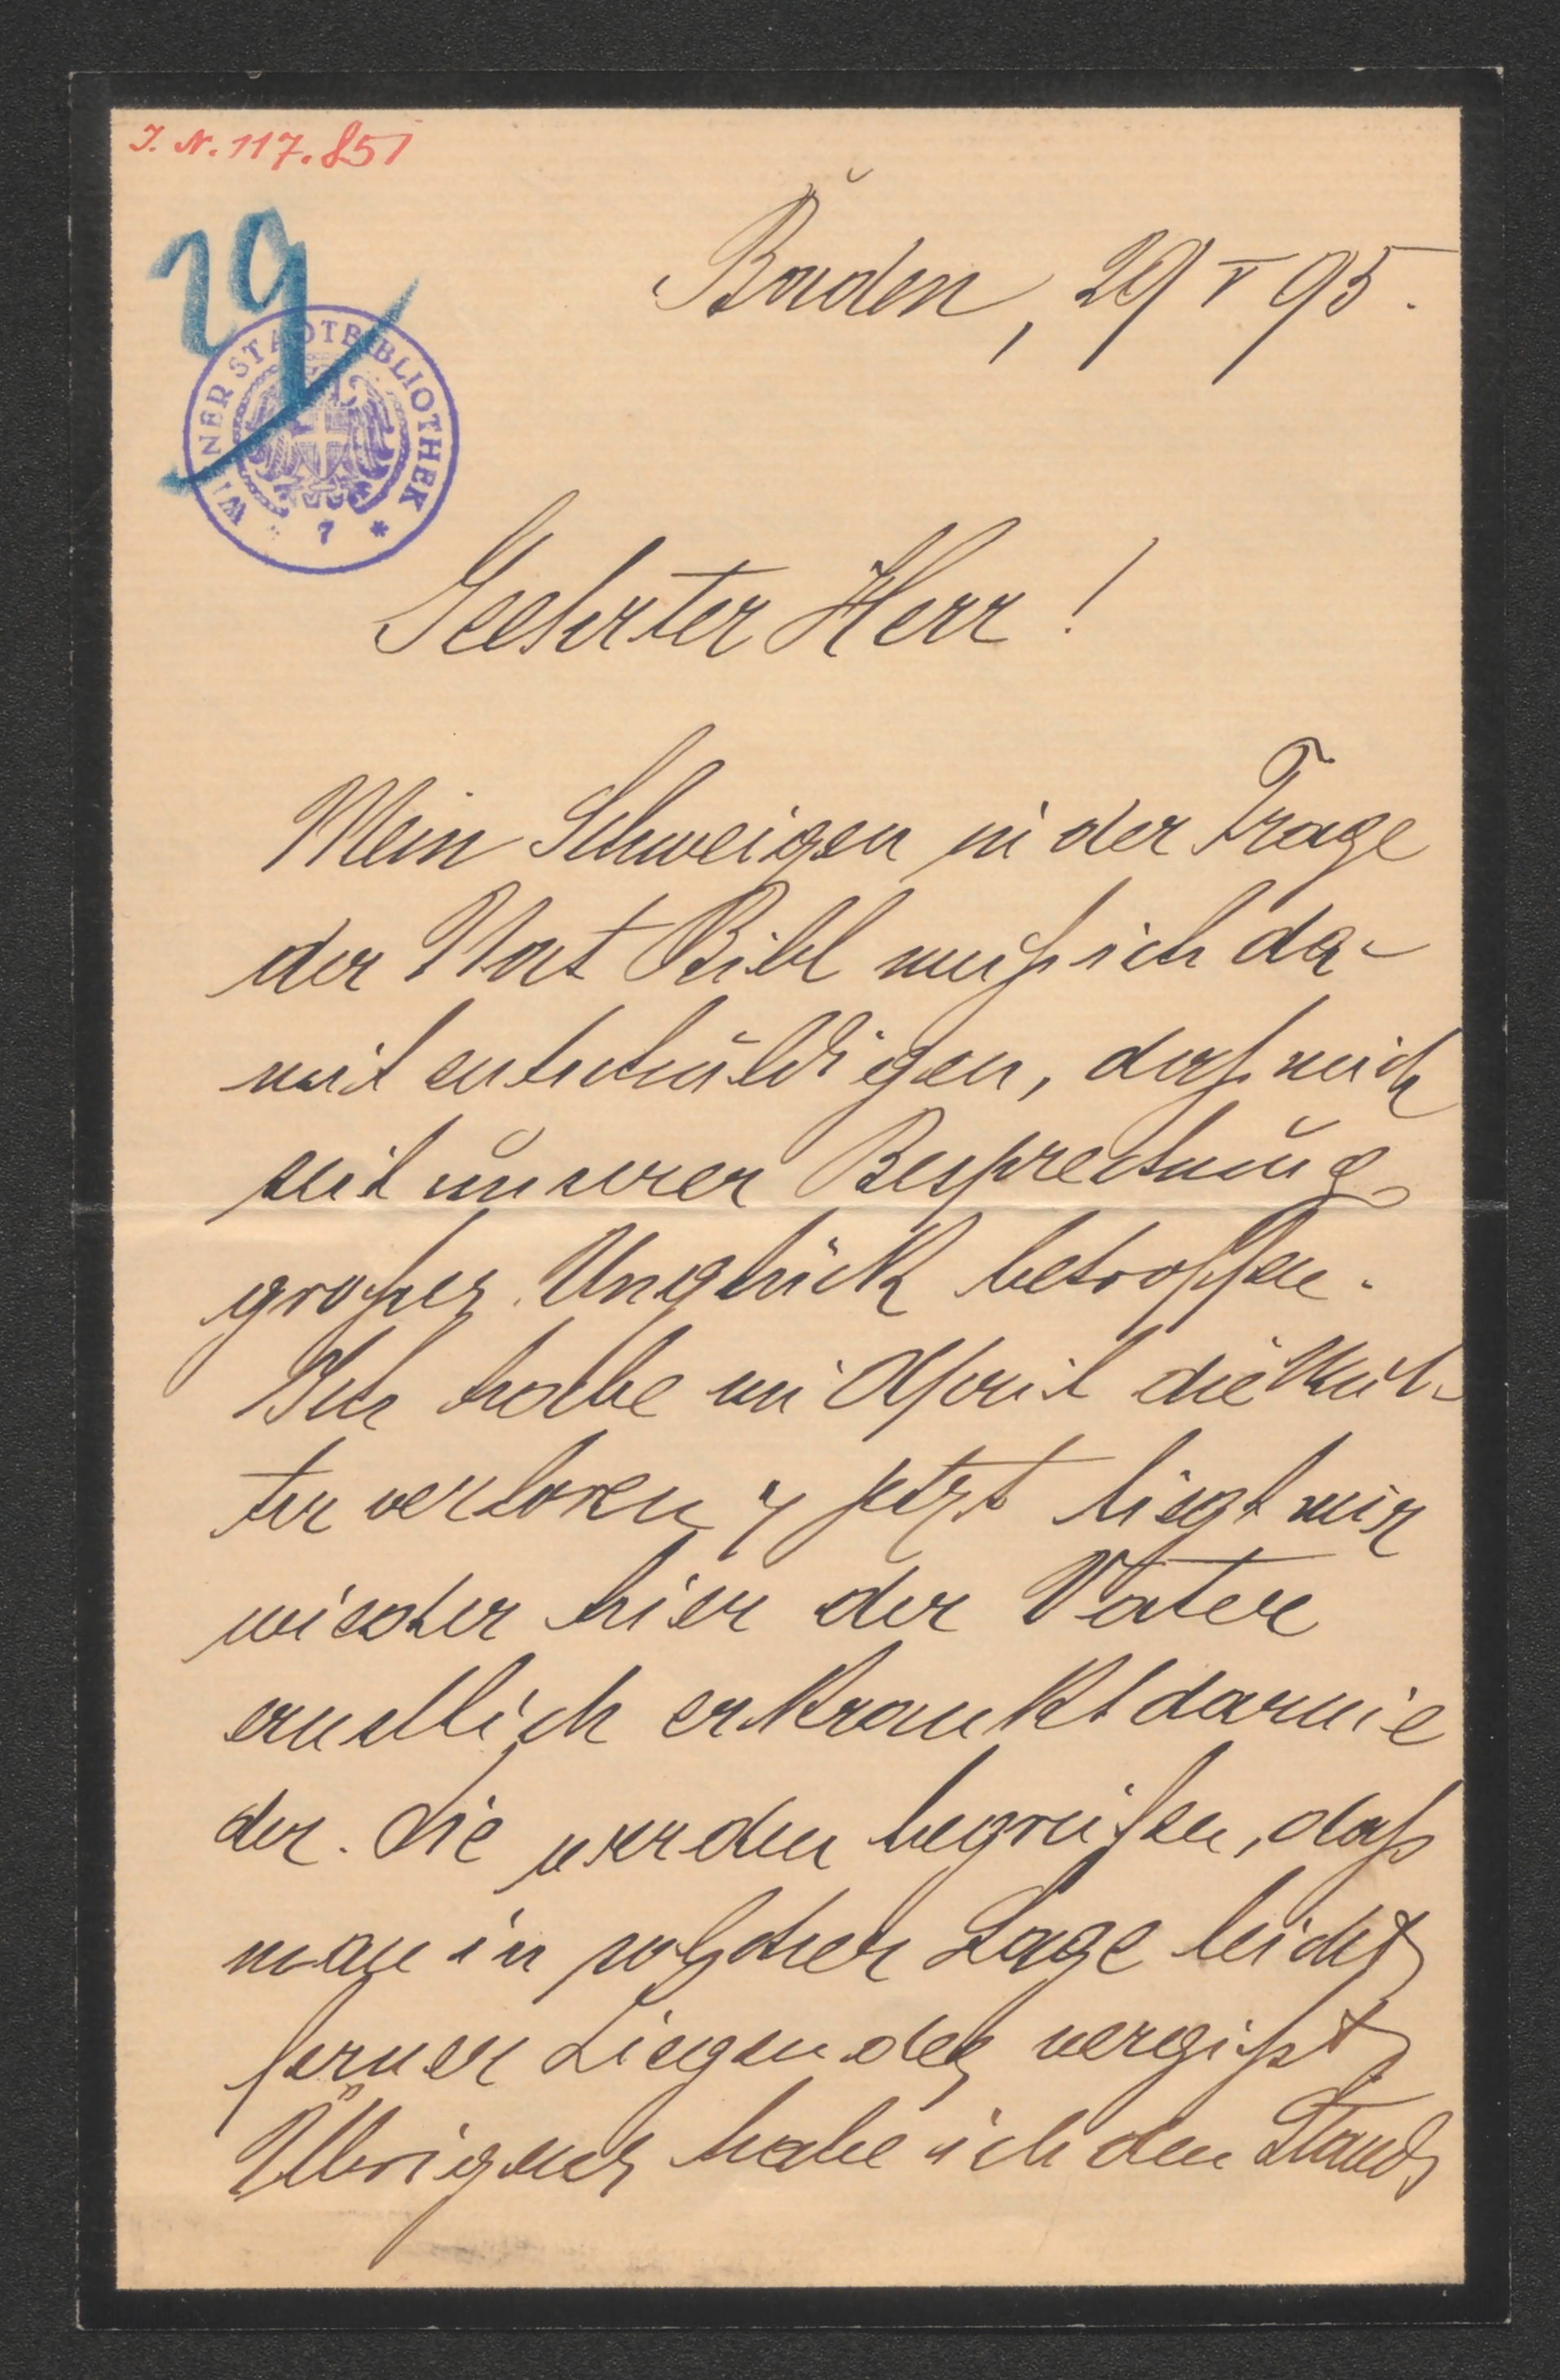 J. N. 117.851
29
WIENER STADTBIBLIOTHEK * 7 *
Baden, 29 V 95.
Geehrter Herr!
Mein Schweigen in der Frage
der Nat Bibl muß ich da-
mit entschuldigen, daß mich
seit unserer Besprechung
großes Unglück betroffen.
Ich habe im April die Mut-
ter verloren & jetzt liegt mir
wieder hier der Vater
ernstlich erkrankt darnie
der. Sie werden begreifen, daß
man in solcher Lage leicht
ferner Liegendes vergißt
Übrigens habe ich den Stand